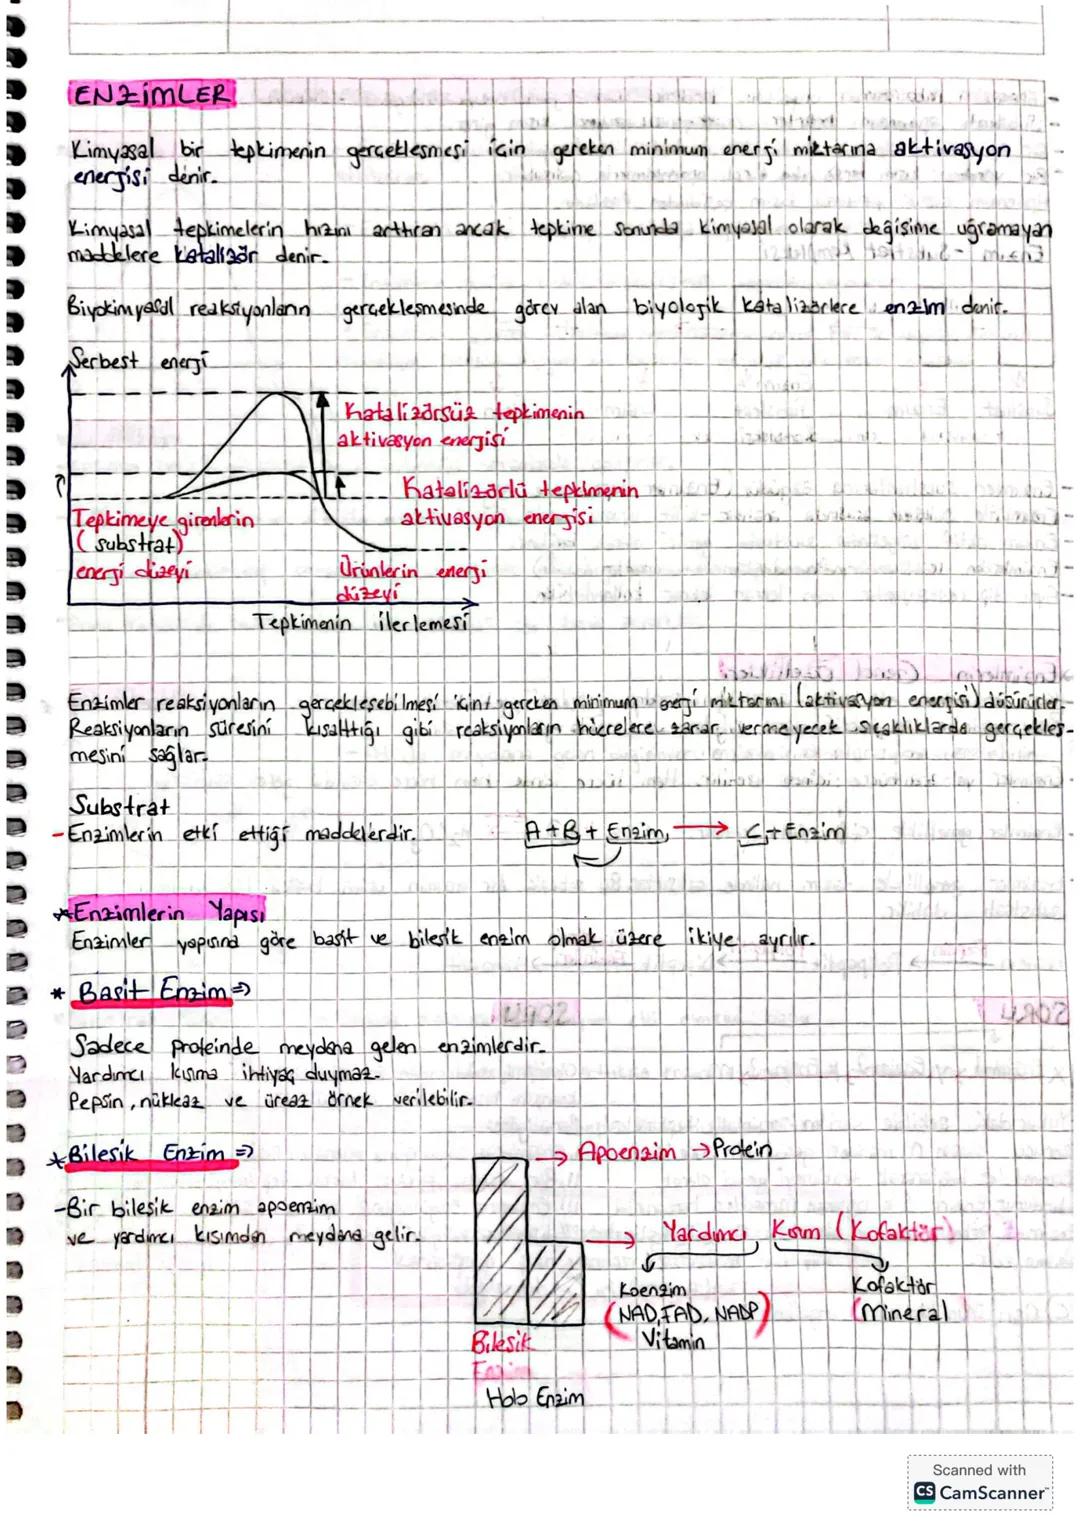 ENZİMLER
Kimyasal bir tepkimenin gerçekleşmesi için gereken minimum enerji miktarına aktivasyon
enerjisi denir.
Kimyasal tepkimelerin hızını arttıran ancak tepkime sonunda kimyasal olarak değişime uğramayan
maddelere katalizör denir.
Biyokimyasal reaksiyonların gerçekleşmesinde görev alan biyolojik katalizörlere enzim denir.
Serbest enerji
Katalizörsüz tepkimenin
aktivasyon enerjisi
Katalizörlü tepkimenin
aktivasyon enerjisi
Tepkimeye girenlerin
(substrat)
enerji düzeyi
Ürünlerin enerji
düzeyi
Tepkimenin ilerlemesi
Enzimler reaksiyonların gerçekleşebilmesi için gereken minimum enerji miktarını (aktivasyon enerjisi) düşürürler.
Reaksiyonların süresini kısalttığı gibi reaksiyonların hücrelere zarar vermeyecek sıcaklıklarda gerçekleş-
mesini sağlar.
Substrat
- Enzimlerin etki ettiği maddelerdir.
A+B + Enzim → C + Enzim
* Enzimlerin Yapısı
Enzimler yapısına göre basit ve bileşik enzim olmak üzere ikiye ayrılır.
* Basit Enzim ⇒
Sadece proteinde meydana gelen enzimlerdir.
Yardımcı kısıma ihtiyaç duymaz.
Pepsin, nükleaz ve üreaz örnek verilebilir.
* Bileşik Enzim ⇒
→ Apoenzim → Protein
- Bir bileşik enzim apoenzim
ve yardımcı kısımdan meydana gelir.
→ Yardımcı Kısım (Kofaktör)
Koenzim
(NAD, FAD, NADP)
Vitamin
Kofaktör
(Mineral
Bileşik
Enzim
Holo Enzim
Scanned with
CS CamScanner